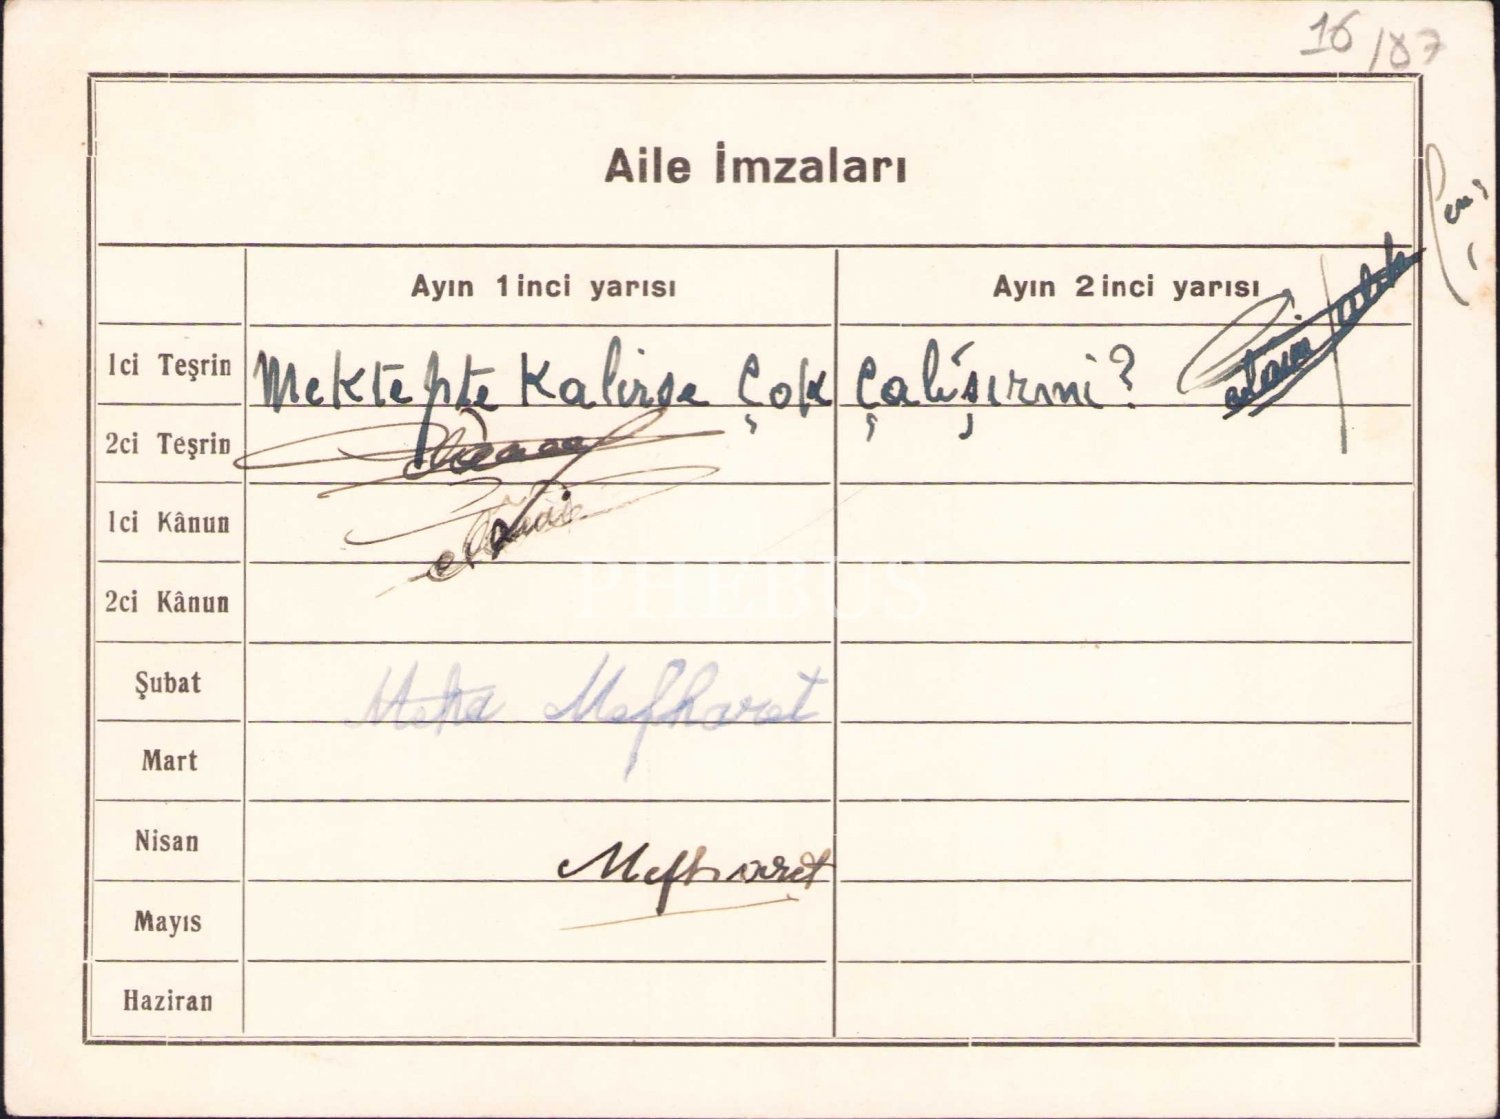 16/87
Aile İmzaları
Ayın 1 inci yarısı Ayın 2 inci yarısı
1ci Teşrin Mektepte Kalirse Çok Çalişırmi?
2ci Teşrin
1ci Kânun
2ci Kânun
PHEBUS
Şubat Mefharet
Mart
Nisan Mefharet
Mayıs
Haziran